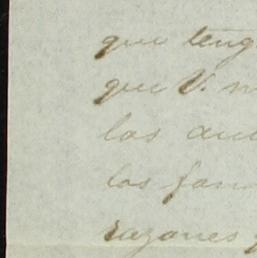 que teng
que V. n
las au
los fam
razones